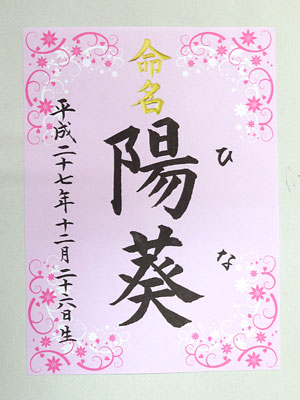 命名
陽葵
ひな
平成二十七年十二月二十六日生